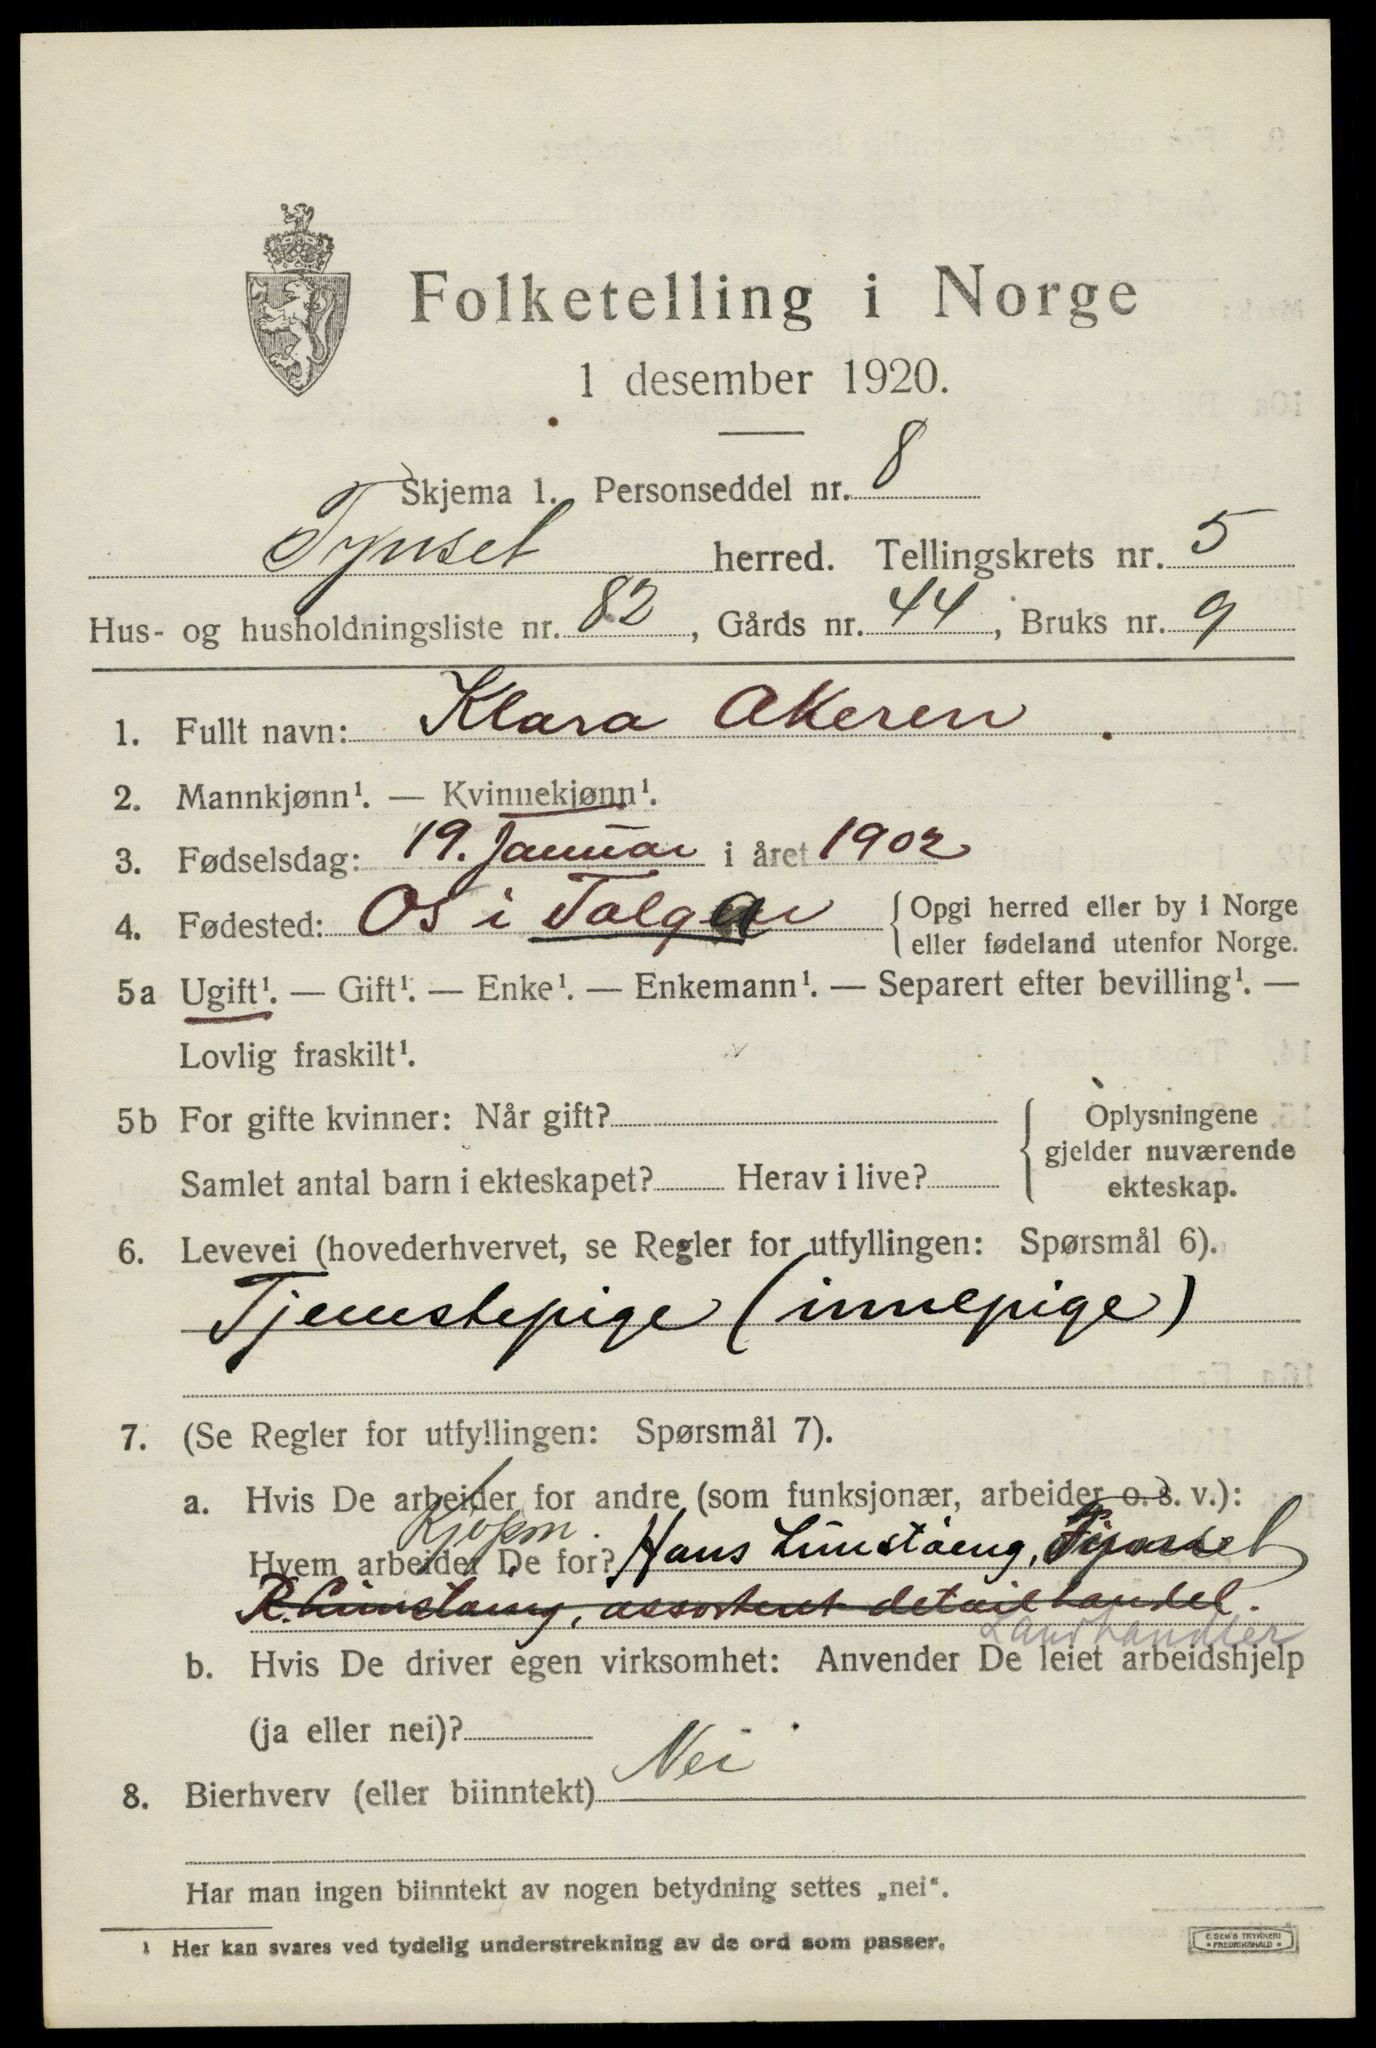 Folketelling i Norge
1 desember 1920.
Skjema 1. Personseddel nr. 8
Tynset herred. Tellingskrets nr. 5
Hus- og husholdningsliste nr. 82, Gårds nr. 44, Bruks nr. 9
1. Fullt navn: Klara Akeren
2. Mannkjønn¹. — Kvinnekjønn¹.
3. Fødselsdag: 19. Januar i året 1902
4. Fødested: Os i Tolga { Opgi herred eller by i Norge
eller fødeland utenfor Norge.
5a Ugift¹. — Gift¹. — Enke¹. — Enkemann¹. — Separert efter bevilling¹. —
Lovlig fraskilt¹.
5b For gifte kvinner: Når gift? { Oplysningene
gjelder nuværende
Samlet antal barn i ekteskapet? Herav i live? ekteskap.
6. Levevei (hovederhvervet, se Regler for utfyllingen: Spørsmål 6).
Tjenestepige (innepige)
7. (Se Regler for utfyllingen: Spørsmål 7).
a. Hvis De arbeider for andre (som funksjonær, arbeider o. s. v.):
Kjøpm.
Hvem arbeider De for? Hans Limstäeng, Tynset
R. Limstäeng, assortert detailhandel.
Landhandler
b. Hvis De driver egen virksomhet: Anvender De leiet arbeidshjelp
(ja eller nei)?
8. Bierhverv (eller biinntekt) Nei
Har man ingen biinntekt av nogen betydning settes „nei“.
¹ Her kan svares ved tydelig understrekning av de ord som passer.
E. SEM'S TRYKKERI
FREDRIKSHALD